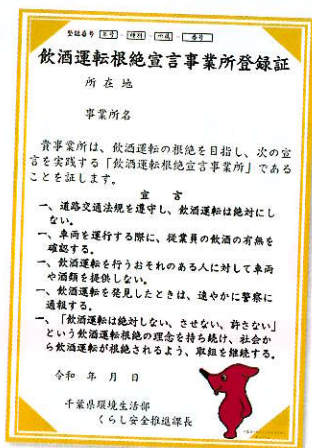 登録番号 年号 - 種別 - 所属 - 番号
飲酒運転根絶宣言事業所登録証
所在地
事業所名
貴事業所は、飲酒運転の根絶を目指し、次の宣
言を実践する「飲酒運転根絶宣言事業所」である
ことを証します。
宣 言
一、道路交通法規を遵守し、飲酒運転は絶対にし
ない。
一、車両を運行する際に、従業員の飲酒の有無を
確認する。
一、飲酒運転を行うおそれのある人に対して車両
や酒類を提供しない。
一、飲酒運転を発見したときは、速やかに警察に
通報する。
一、「飲酒運転は絶対しない、させない、許さない」
という飲酒運転根絶の理念を持ち続け、社会か
ら飲酒運転が根絶されるよう、取組を継続する。
令和 年 月 日
千葉県環境生活部
くらし安全推進課長